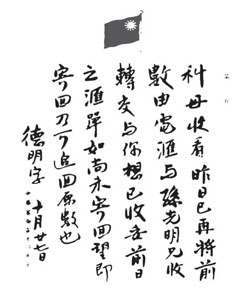 科母收看昨日已再將前
數由電滙与孫光明兄收
轉交与你想已收妥前日
之滙單如尚未寄回望即
寄回乃可追回原數也
德明字
十月廿七日